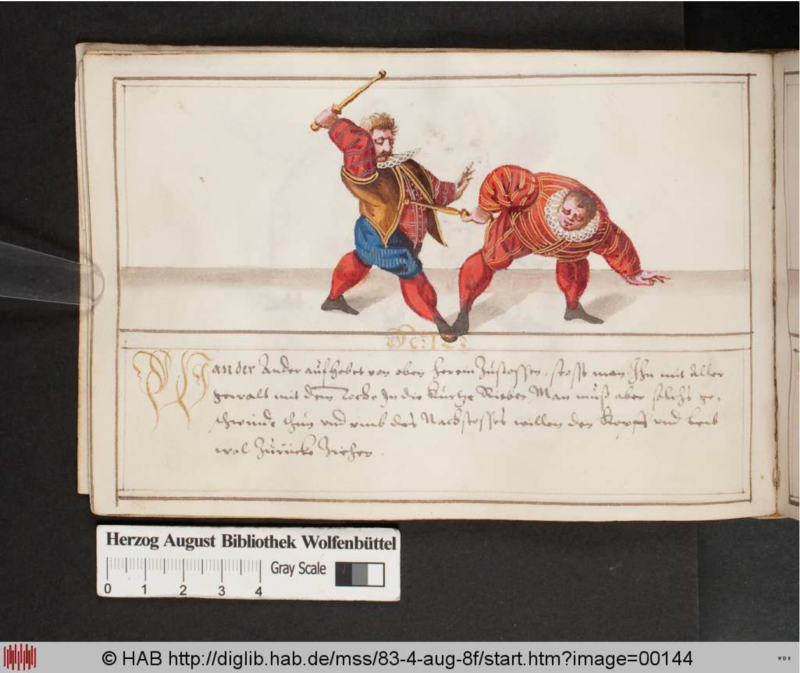 Wan der Ander aufhebet von oben herein Zustossen, stost man Ihn mit Aller
gewalt mit dem In die kurtze Rieben, Man muß aber solchs ge,
schwinde thun vnd vmb des Nachstosses willen den Kopff vnd leib
wol Zurücke Ziehen.
Herzog August Bibliothek Wolfenbüttel
Gray Scale
0 1 2 3 4
© HAB http://diglib.hab.de/mss/83-4-aug-8f/start.htm?image=00144